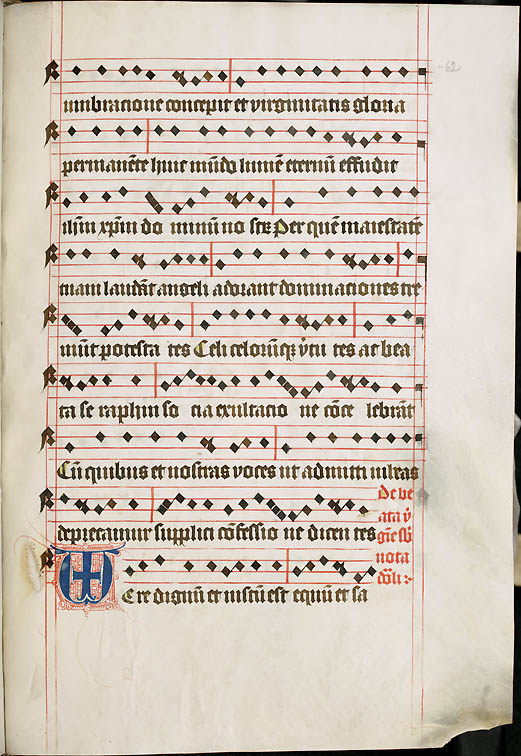 -62
umbracione concepit et virginitatis gloria
permanēte huic mūdo lumē eternū effudit
ihm xpm do minum no str Per quē maiestatē
tuam laudāt angeli adorant dominaciones tre
mūt potesta tes Celi celorūq vtu tes ac bea
ta se raphin so cia exultacio ne cōce lebrāt
Cū quibus et nostras voces ut admitti iubeas
deprecamur supplici cōfessio ne dicen tes
De be
ata v
gīe sb
nota
dnli
Ere dignū et iustū est equū et sa